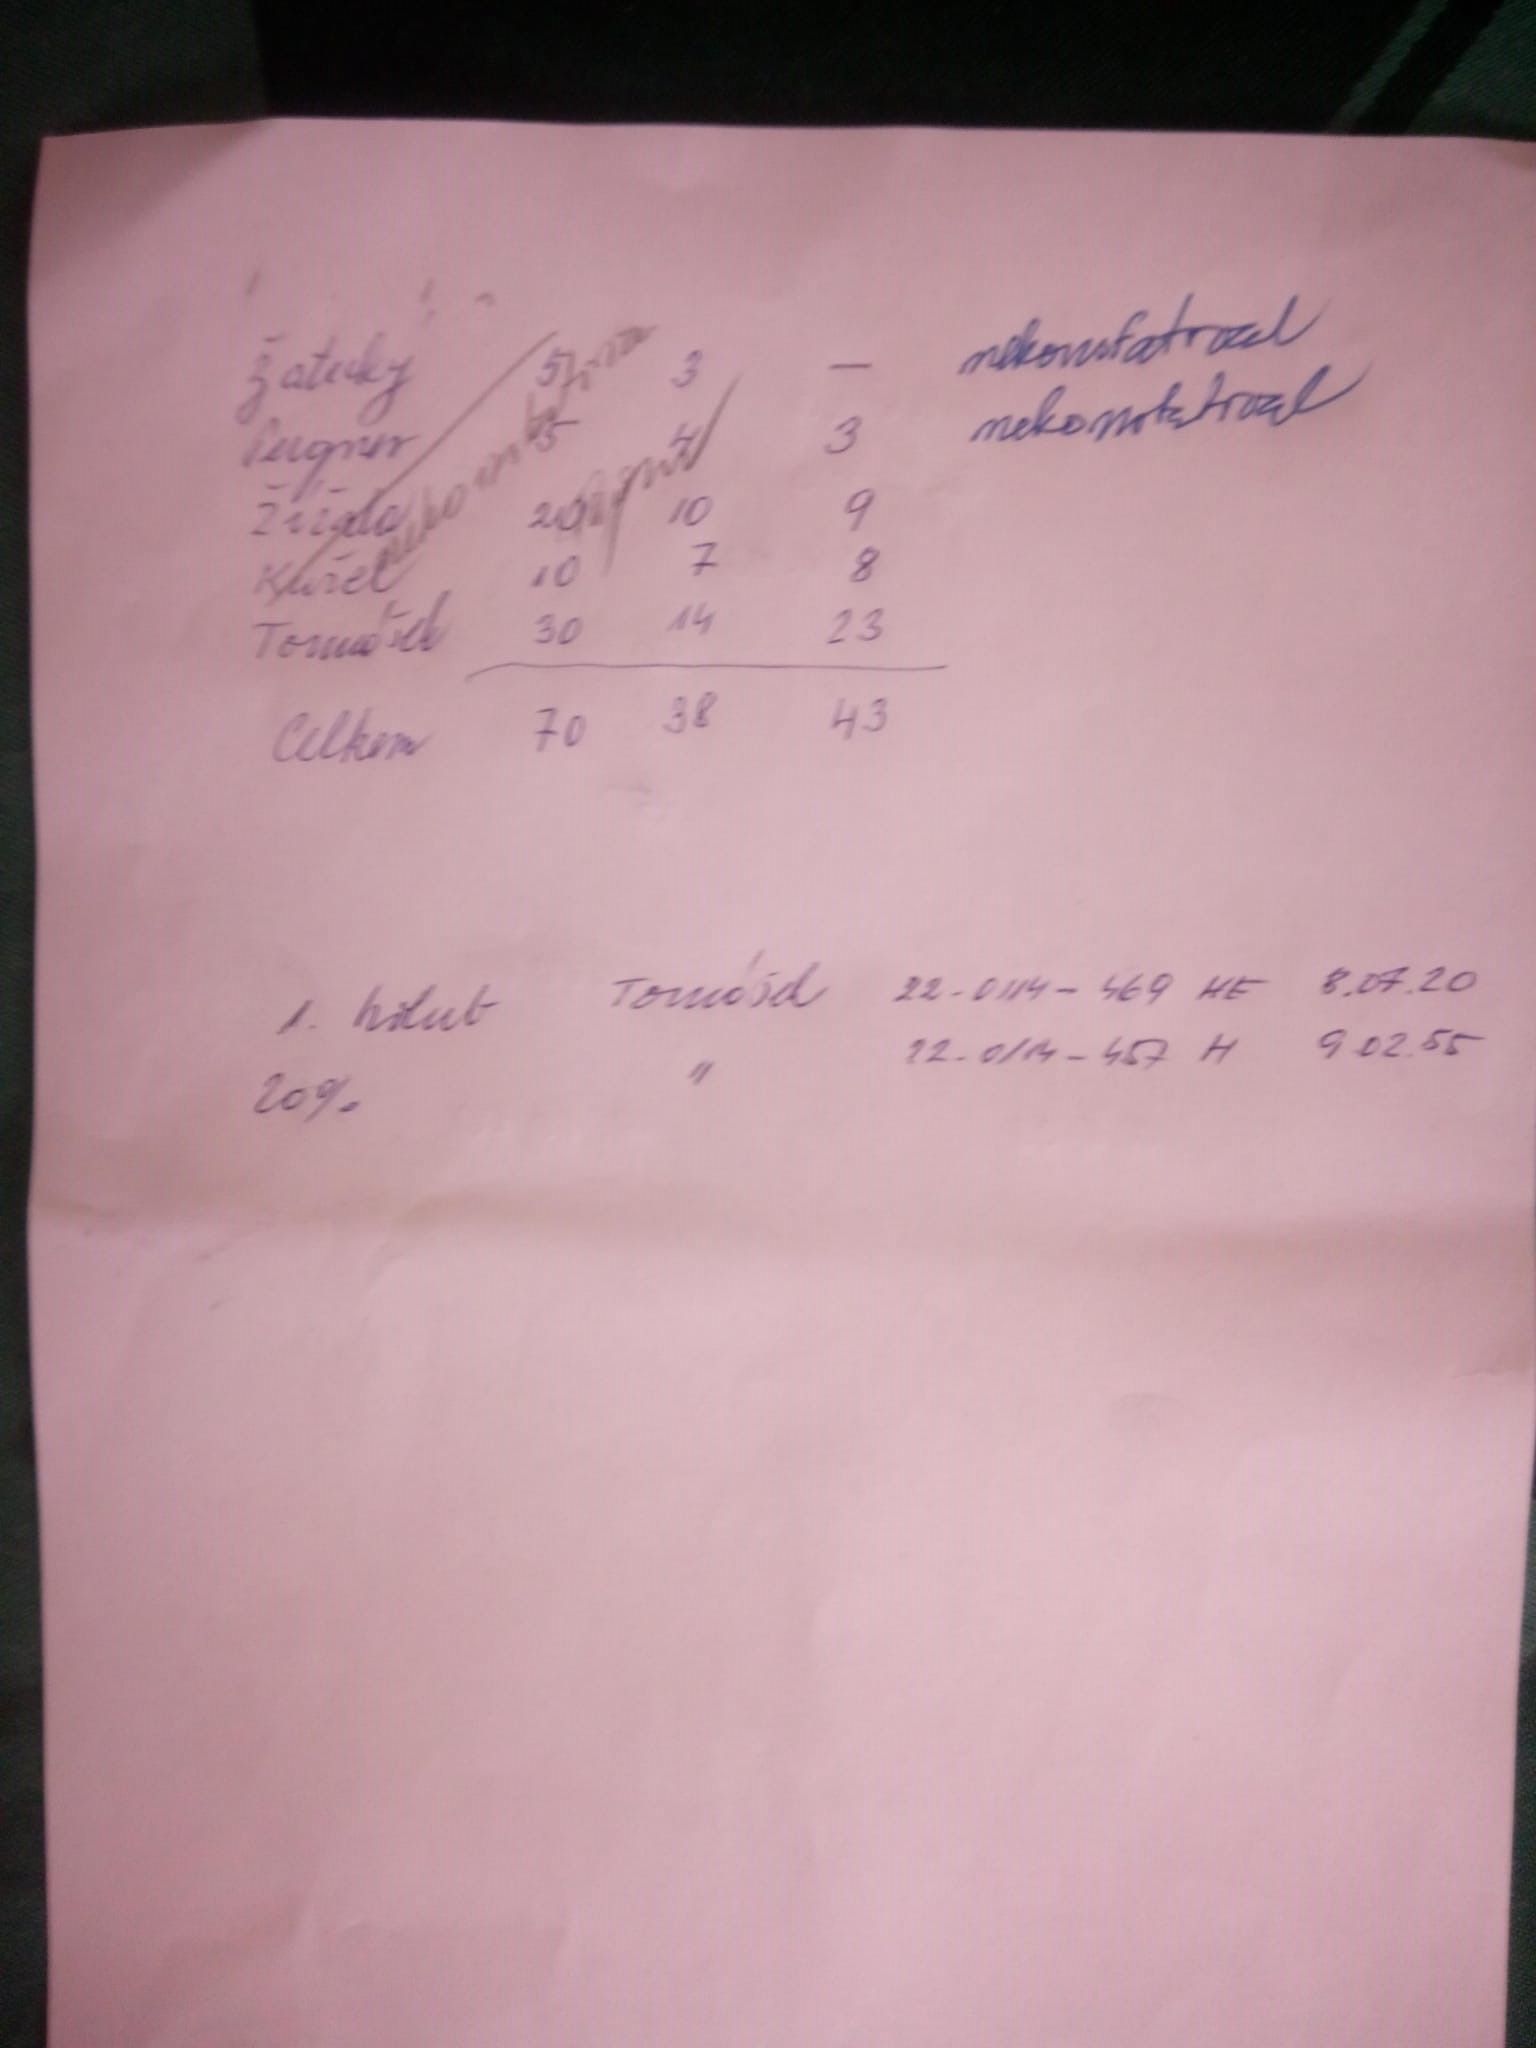 Žatecký 5 3 — nekonstatoval
Pergner 5 4 3 nekonstatoval
20 10 9
Kužel 10 7 8
Tomášek 30 14 23
Celkem 70 38 43
1. holub Tomášek 22-0114-469 HE 8.07.20
20%. " 22-0114-457 H 9 02.55